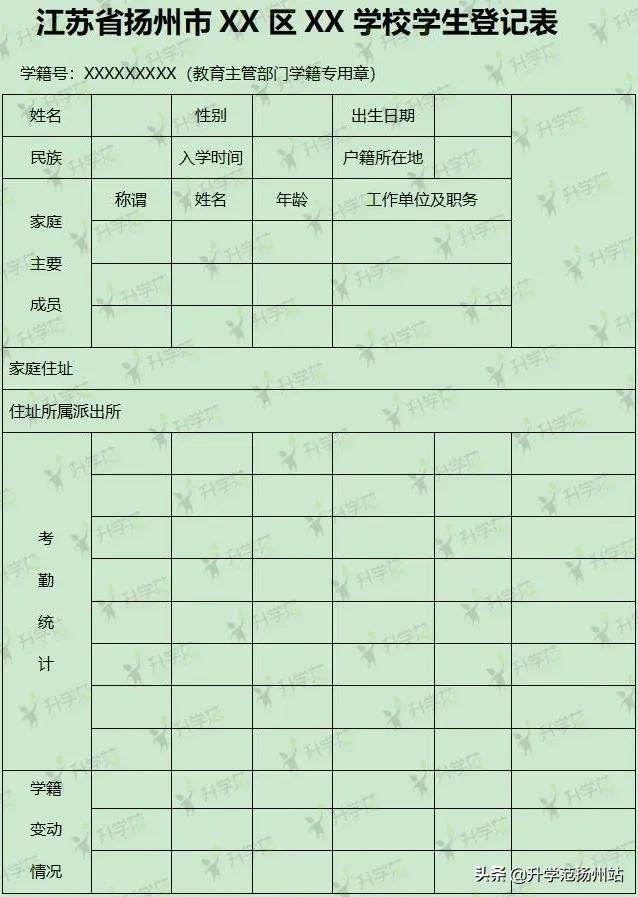 江苏省扬州市 XX 区 XX 学校学生登记表
学籍号：XXXXXXXXX（教育主管部门学籍专用章）
姓名 性别 出生日期
民族 入学时间 户籍所在地
称谓 姓名 年龄 工作单位及职务
家庭
主要
成员
家庭住址
住址所属派出所
考
勤
统
计
学籍
变动
情况
头条 @升学范扬州站
升学范